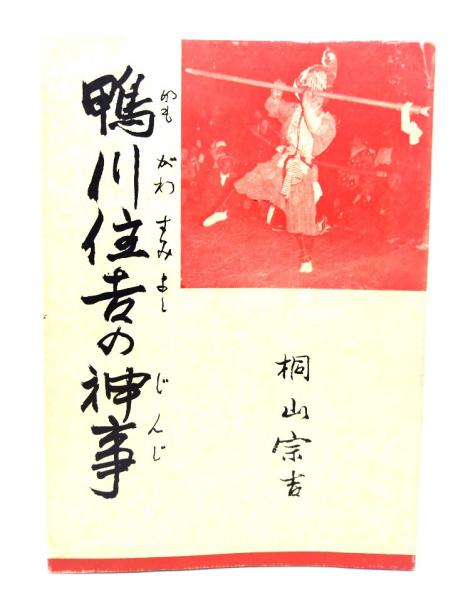 鴨川住吉の神事
かもがわすみよしじんじ
桐山宗吉